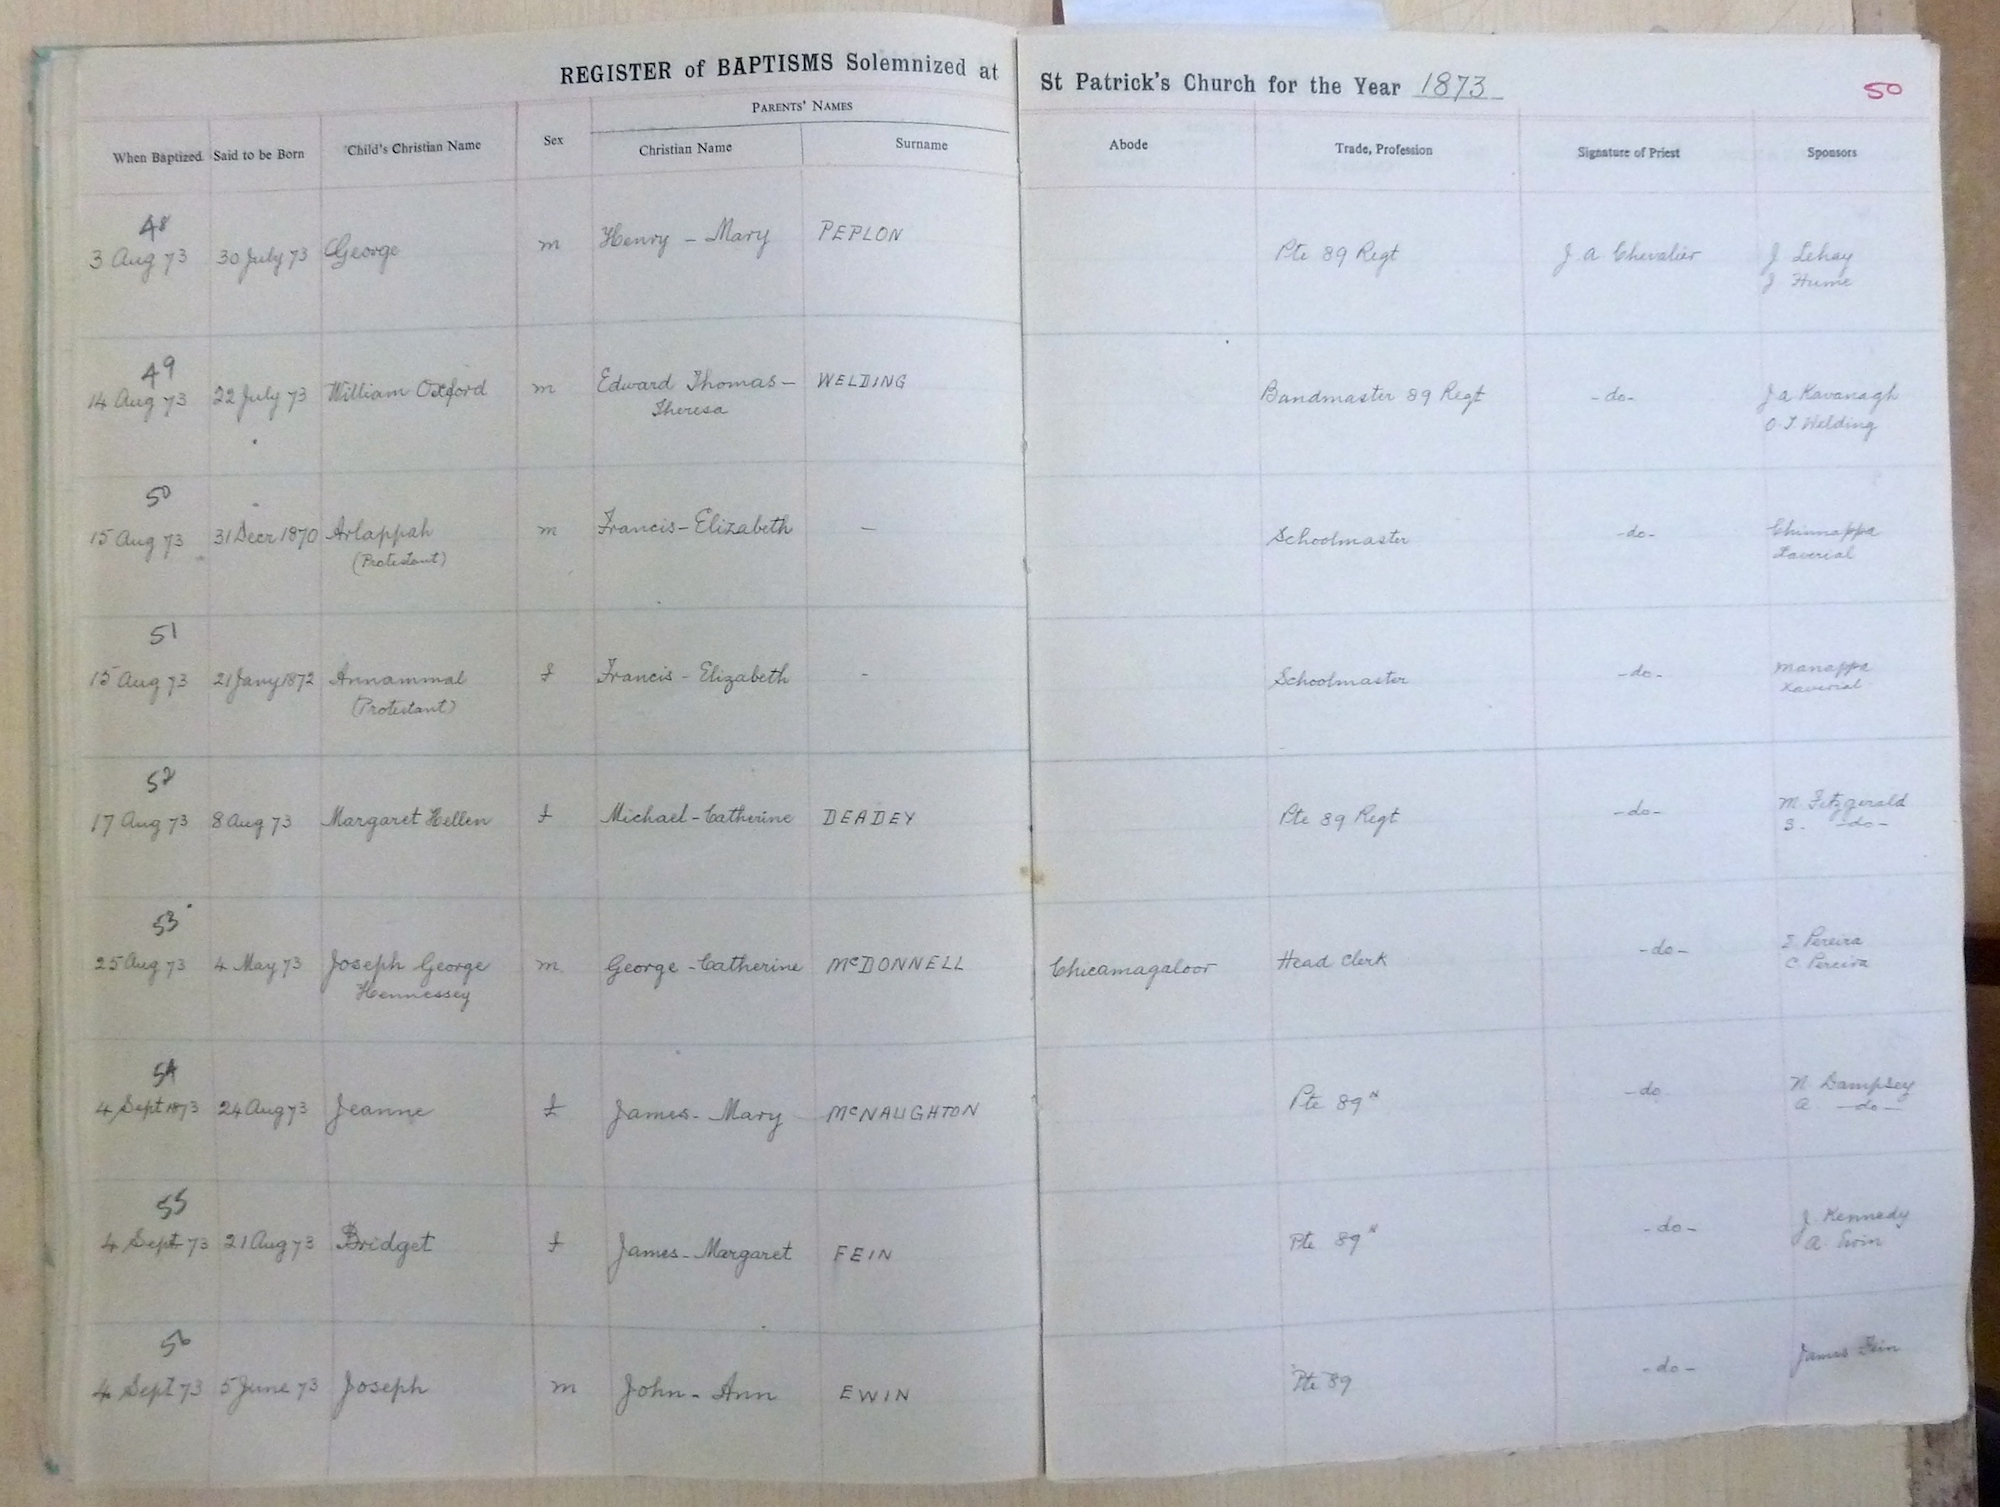 REGISTER of BAPTISMS Solemnized at St Patrick's Church for the Year 1873
50
PARENTS' NAMES
When Baptized. Said to be Born Child's Christian Name Sex Christian Name Surname Abode Trade, Profession Signature of Priest Sponsors
48
3 Aug 73 30 July 73 George m Henry - Mary PEPLON Pte 89 Regt J A Chevalier J Lehay
J Hume
49
14 Aug 73 22 July 73 William Oxford m Edward Thomas - WELDING Bandmaster 89 Regt -do- J A Kavanagh
Theresa O. T. Welding
50
15 Aug 73 31 Decr 1870 Arlappah m Francis - Elizabeth - Schoolmaster -do- Chinnappa
(Protestant) Xaverial
51
15 Aug 73 21 Jany 1872 Annammal f Francis - Elizabeth - Schoolmaster -do- Manappa
(Protestant) Xaverial
52
17 Aug 73 8 Aug 73 Margaret Hellen f Michael - Catherine DEADEY Pte 89 Regt -do- M. Fitzgerald
S. -do-
53
25 Aug 73 4 May 73 Joseph George m George - Catherine McDONNELL Chicamagaloor Head Clerk -do- E. Pereira
Hennessey C. Pereira
54
4 Sept 1873 24 Aug 73 Jeanne f James - Mary McNAUGHTON Pte 89 -do N Dampsey
A -do-
55
4 Sept 73 21 Aug 73 Bridget f James - Margaret FEIN Pte 89 -do- J. Kennedy
A.
56
4 Sept 73 5 June 73 Joseph m John - Ann EWIN Pte 89 -do- James Fein